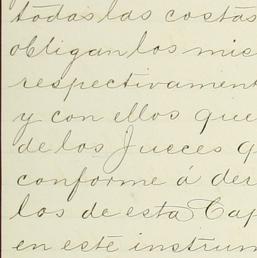 todas las costas
obligan los mis
respectivament
y con ellos que
de los Jueces q
conforme á der
los de esta Cap
en este instrum